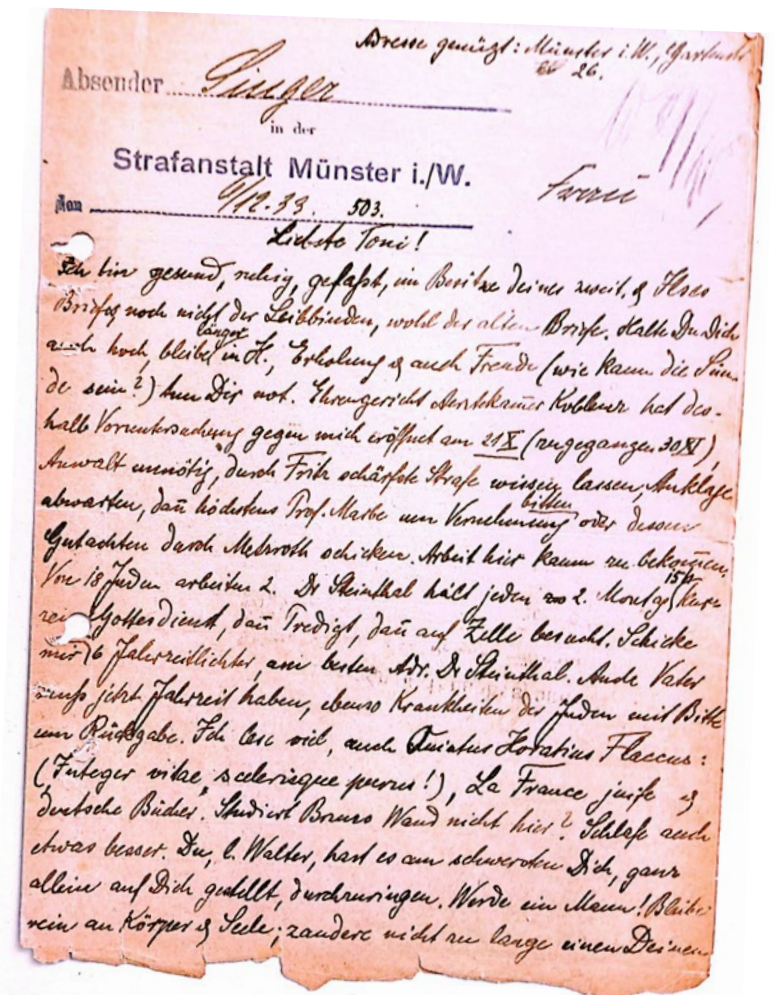 Adresse genügt: Münster i. W., Gartenstr
26.
Absender Singer
in der
Strafanstalt Münster i./W.
Frau
Den 6/12. 33. 503.
Liebste Toni!
Ich bin gesund, ruhig, gefaßt, im Besitze Deines zweit. & Ilses
Briefes, noch nicht der Leibbinden, wohl der alten Briefe. Halte Du Dich
auch hoch, bleibe länger in H., Erholung & auch Freude (wie kann die Sün-
de sein?) tun Dir not. Ehrengericht Aerztekammer Koblenz hat des-
halb Voruntersuchung gegen mich eröffnet am 21 X (zugegangen 30 XI),
Anwalt unnötig, durch Fritz schärfste Strafe wissen lassen, Anklage
abwarten, dañ höchstens Prof. Marbe um Vernehmung bitten oder dessen
Gutachten durch Metzroth schicken. Arbeit hier kaum zu bekom̅en.
Von 18 Juden arbeiten 2. Dr Steinthal hält jeden 2. Montag 15h kur-
zen Gottesdienst, dañ Predigt, dañ auf Zelle besucht. Schicke
mir 6 Jahrzeitlichter, am besten Adr. Dr Steinthal. Auch Vater
muß jetzt Jahrzeit haben, ebenso Krankheiten der Juden mit Bitte
um Rückgabe. Ich lese viel, auch Quintus Horatius Flaccus:
(Integer vitae, scelerisque purus!), La France juife &
deutsche Bücher. Studiert Bruno Wand nicht hier? Schlafe auch
etwas besser. Du, l. Walter, hast es am schwersten Dich, ganz
allein auf Dich gestellt, durchzuringen. Werde ein Mann! Bleibe
rein an Körper & Seele; zaudere nicht zu lange einen Deinem